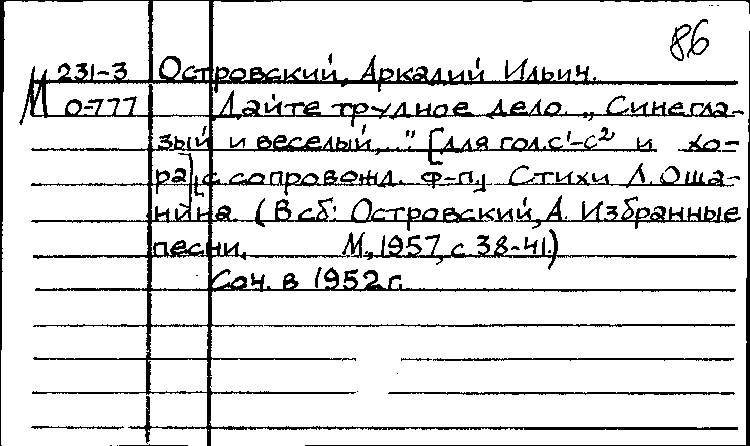 86
М 231-3 Островский, Аркадий Ильич.
О-777 Дайте трудное дело. „Синегла-
зый и веселый,..." [для гол. с¹-с² и хо-
ра] [с сопровожд. ф-п.] Стихи Л. Оша-
нина. (В сб: Островский, А. Избранные
песни. М., 1957, с. 38-41.)
Соч. в 1952 г.